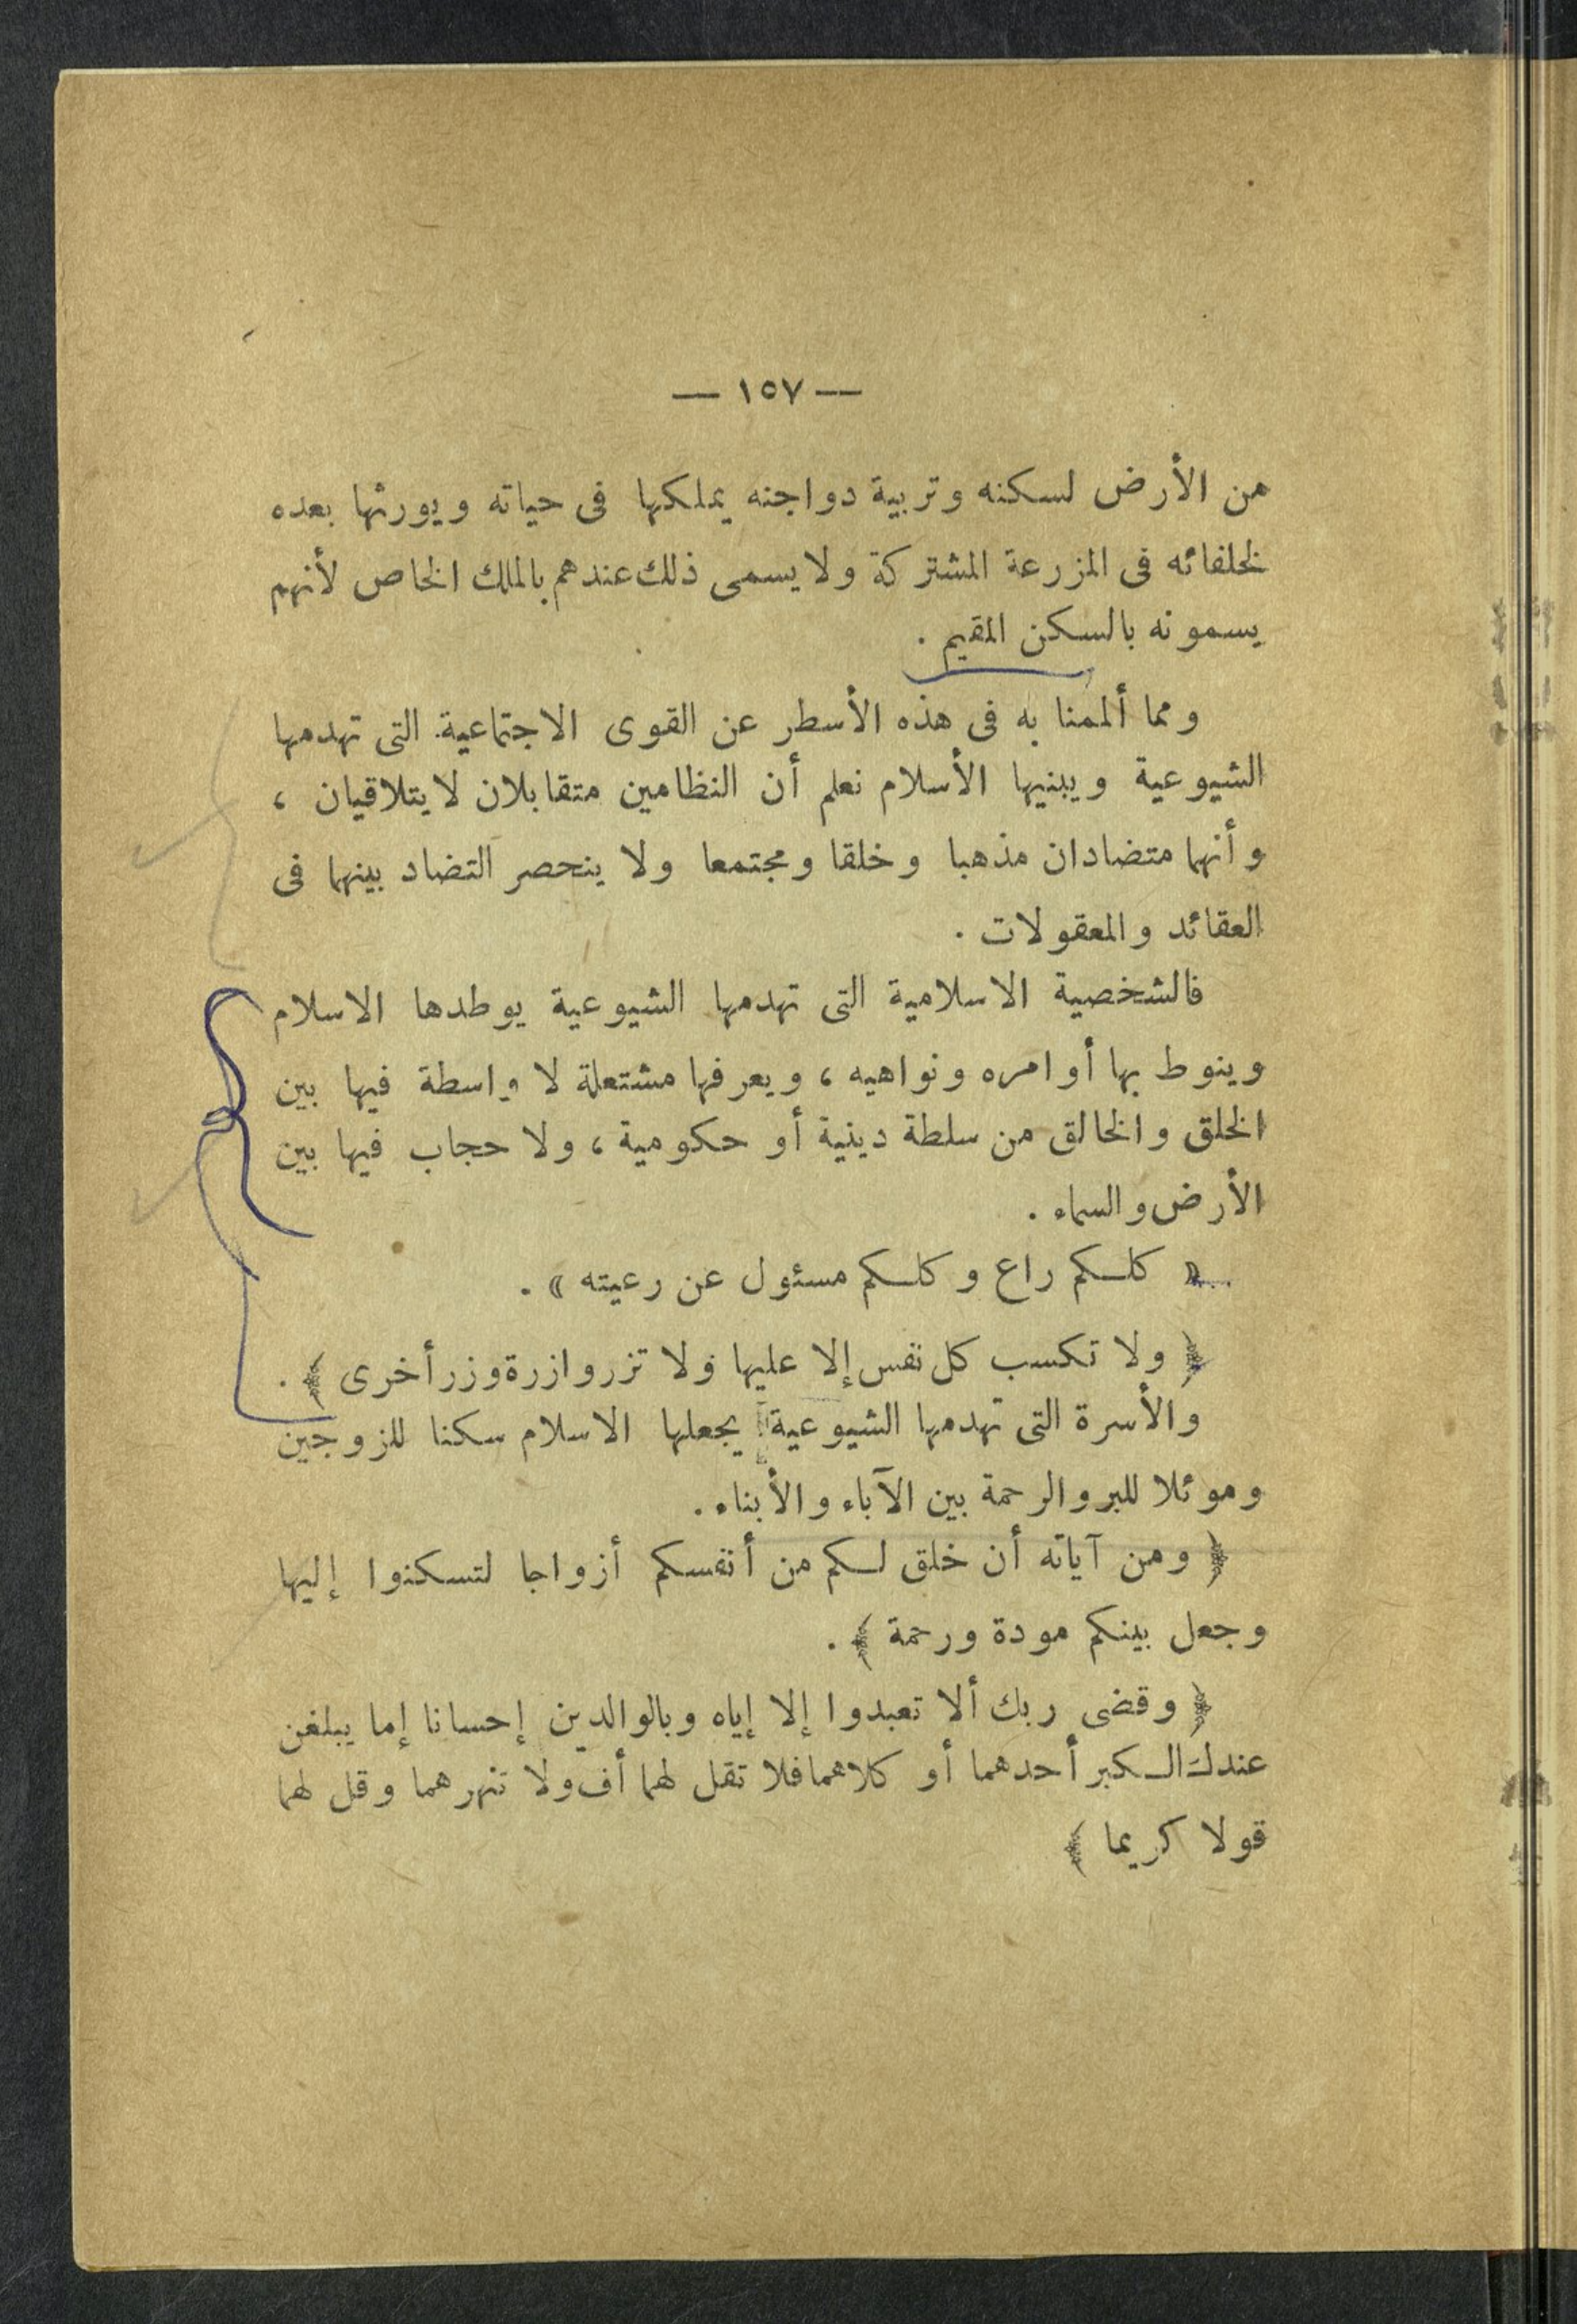 — ١٥٧ —
من الأرض لسكنه وتربية دواجنه يملكها فى حياته ويورثها بعده
لخلفائه فى المزرعة المشتركة ولا يسمى ذلك عندهم بالملك الخاص لأنهم
يسمونه بالسكن المقيم .
ومما ألممنا به فى هذه الأسطر عن القوى الاجتماعية التى تهدمها
الشيوعية ويبنيها الأسلام نعلم أن النظامين متقابلان لا يتلاقيان ،
وأنهما متضادان مذهبا وخلقا ومجتمعا ولا ينحصر التضاد بينهما فى
العقائد والمعقولات .
فالشخصية الاسلامية التى تهدمها الشيوعية يوطدها الاسلام
وينوط بها أوامره ونواهيه ، ويعرفها مشتعلة لا واسطة فيها بين
الخلق والخالق من سلطة دينية أو حكومية ، ولا حجاب فيها بين
الأرض والسماء .
« كلكم راع وكلكم مسئول عن رعيته » .
﴿ ولا تكسب كل نفس إلا عليها ولا تزر وازرة وزر أخرى ﴾ .
والأسرة التى تهدمها الشيوعية يجعلها الاسلام سكنا للزوجين
وموئلا للبر والرحمة بين الآباء والأبناء .
﴿ ومن آياته أن خلق لكم من أنفسكم أزواجا لتسكنوا إليها
وجعل بينكم مودة ورحمة ﴾ .
﴿ وقضى ربك ألا تعبدوا إلا إياه وبالوالدين إحسانا إما يبلغن
عندك الكبر أحدهما أو كلاهما فلا تقل لهما أف ولا تنهرهما وقل لهما
قولا كريما ﴾